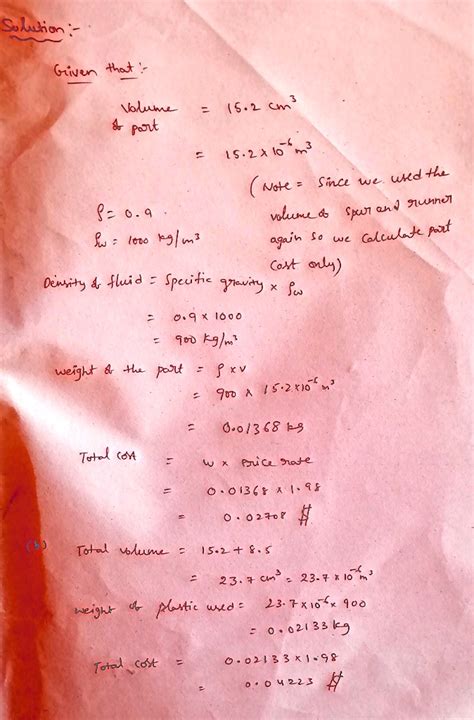 Solution :-
Given that :-
Volume of part = 15.2 cm³
= 15.2 x 10⁻⁶ m³
(Note = Since we used the volume of spur and runner again so we calculate part cost only)
ρ = 0.9
ρw = 1000 kg/m³
Density of fluid = Specific gravity x ρw
= 0.9 x 1000
= 900 kg/m³
weight of the part = ρ x v
= 900 x 15.2 x 10⁻⁶ m³
= 0.01368 kg
Total cost = w x price rate
= 0.01368 x 1.98
= 0.02708 $
(b) Total volume = 15.2 + 8.5
= 23.7 cm³ = 23.7 x 10⁻⁶ m³
weight of plastic used = 23.7 x 10⁻⁶ x 900
= 0.02133 kg
Total cost = 0.02133 x 1.98
= 0.04223 $